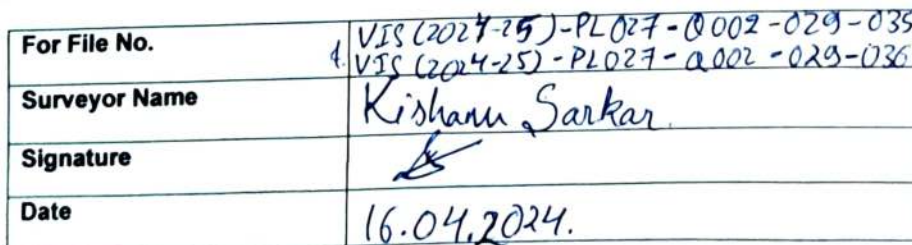 For File No.
VIS (2024-25)-PL027-Q002-029-035
& VIS (2024-25)-PL027-Q002-029-036
Surveyor Name
Kishanu Sarkar
Signature
Date
16.04.2024.